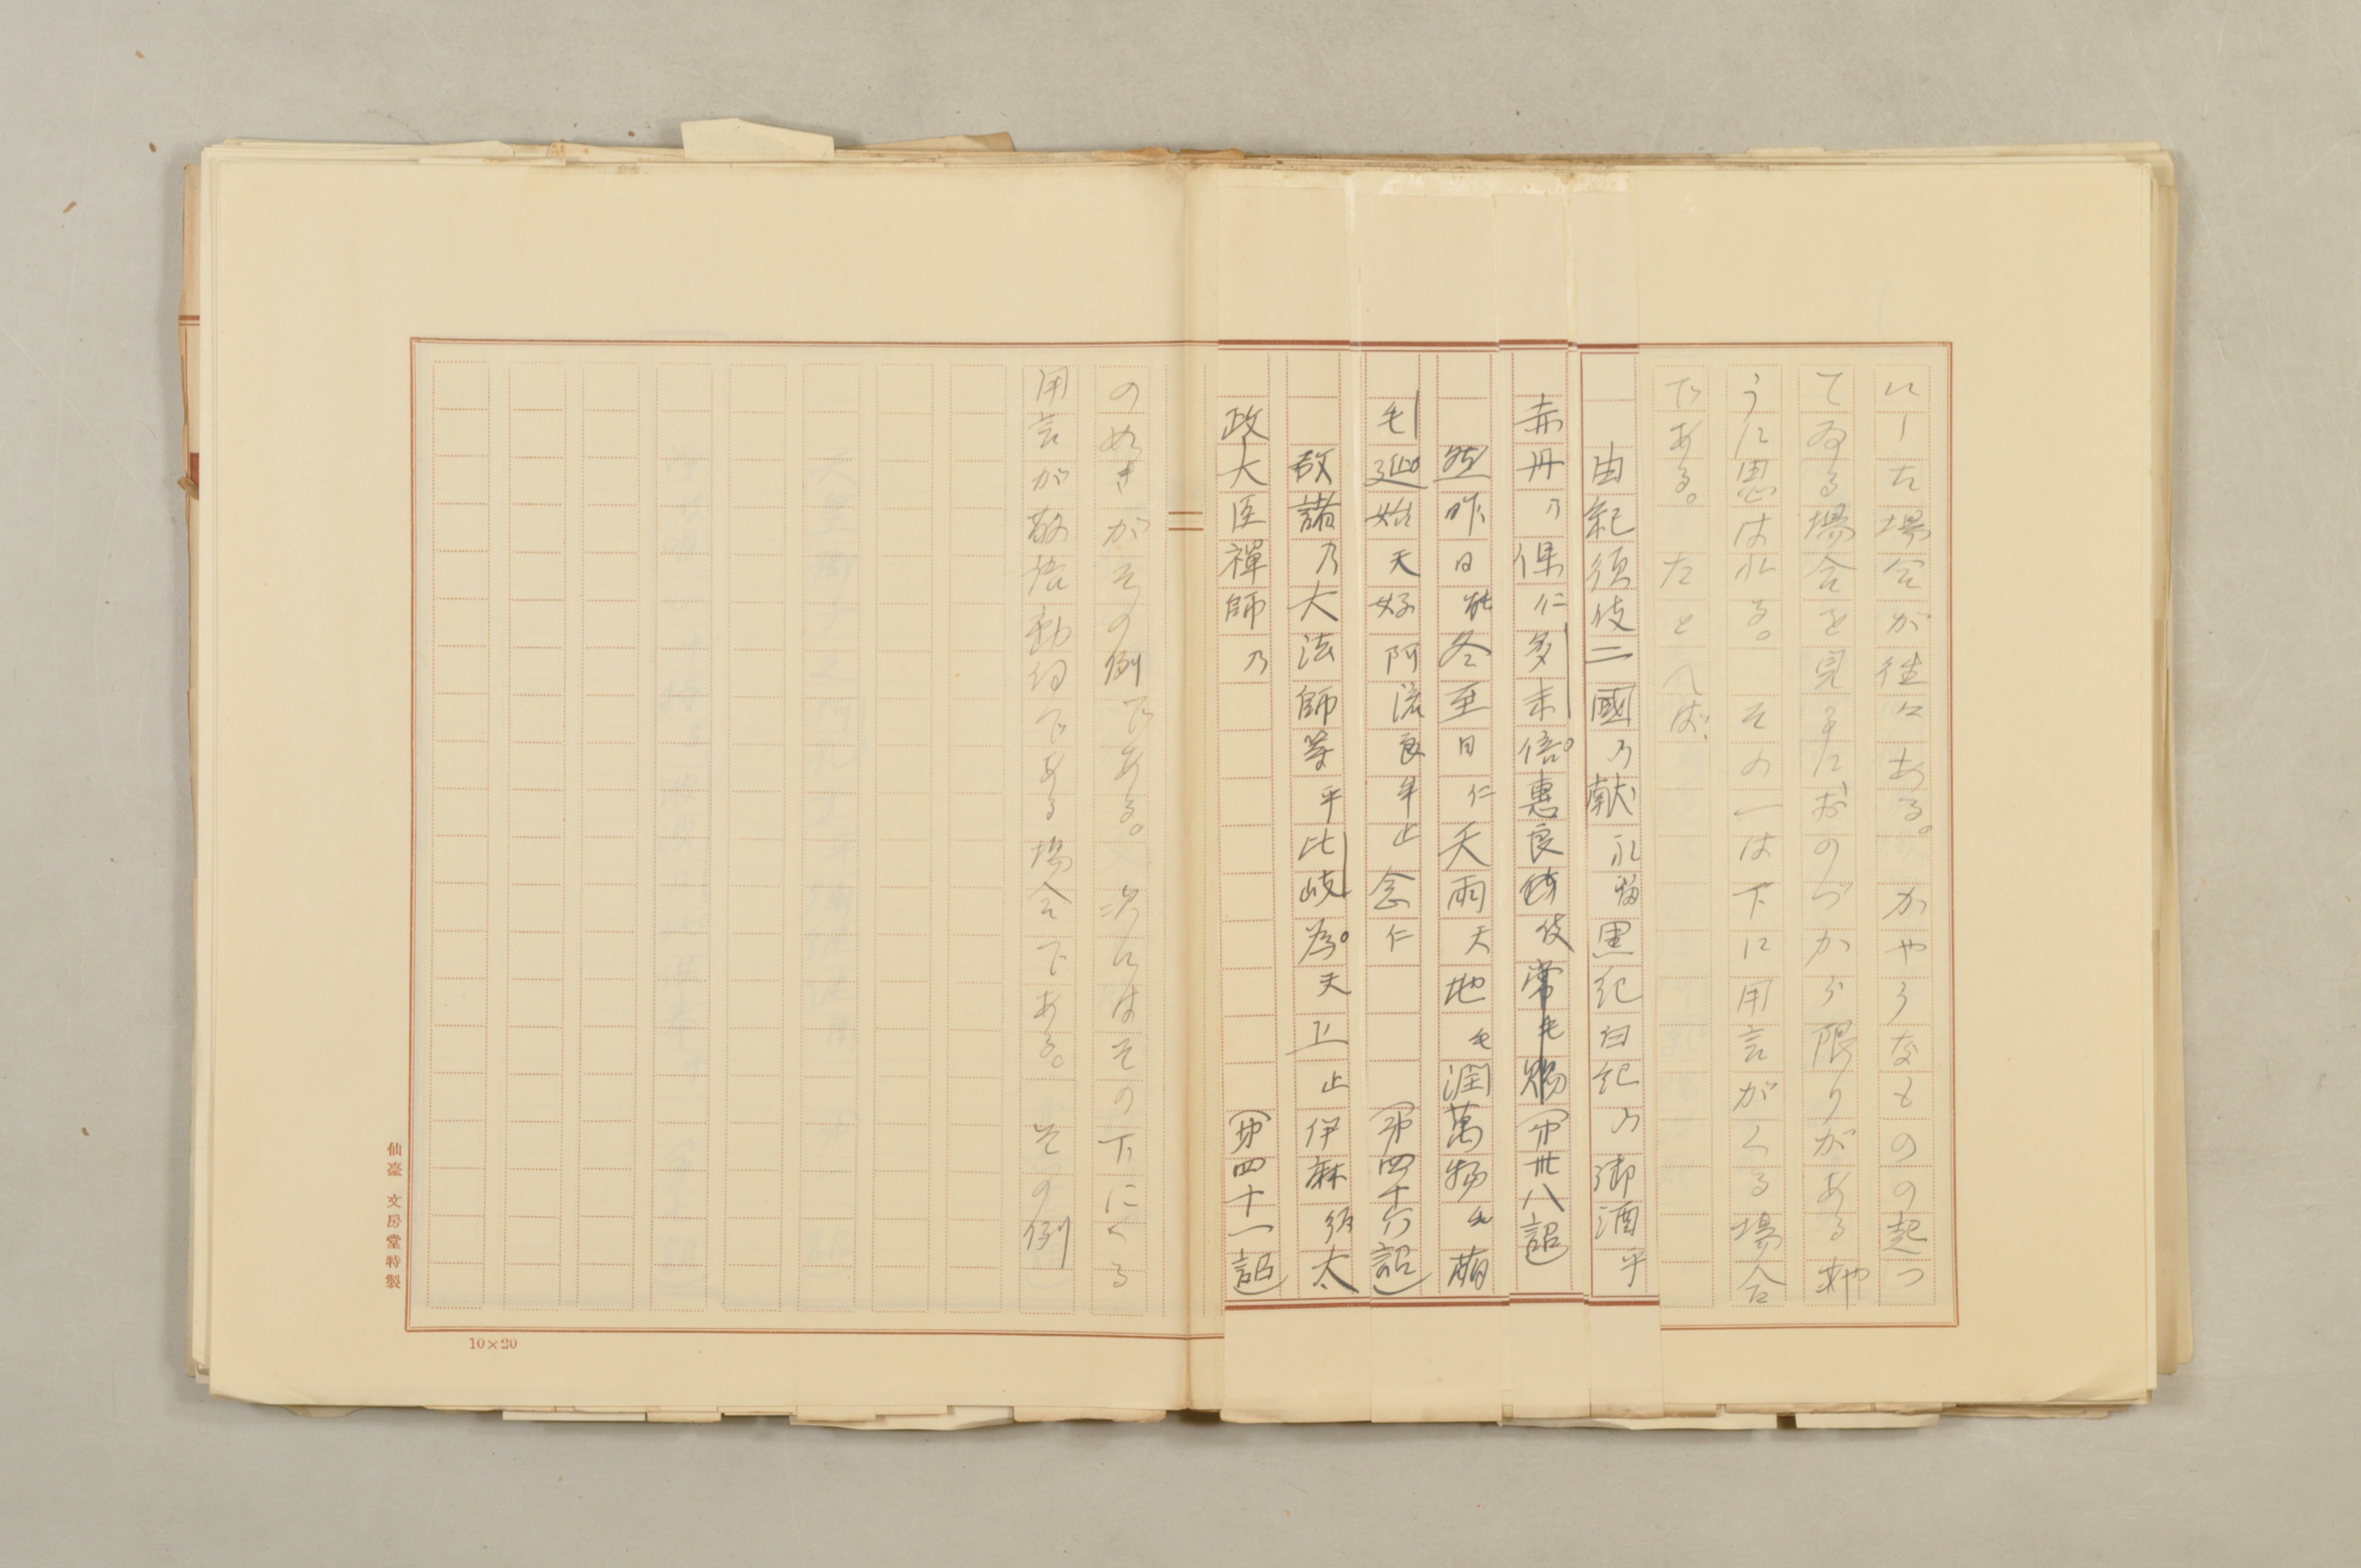 にした場合が往々ある。かやうなものの起つ
てゐる場合を見るにおのづから限りがあるや
うに思はれる。その一は下に用言がくる場合
である。たとへば、
由紀須伎二國乃献礼留黒紀白紀乃御酒乎
赤丹乃保仁多末倍惠良伎常毛賜（第卅八詔
然昨日能冬至日仁天雨天地毛潤萬物毛萌
毛延始天好阿流良牟止念仁（第四十六詔）
故諸乃大法師等乎比岐為天上止伊麻須太
政大臣禪師乃（第四十一詔）
の如きがその例である。次にはその下にくる
用言が敬語動詞である場合である。その例
仙臺 文房堂特製
10×20